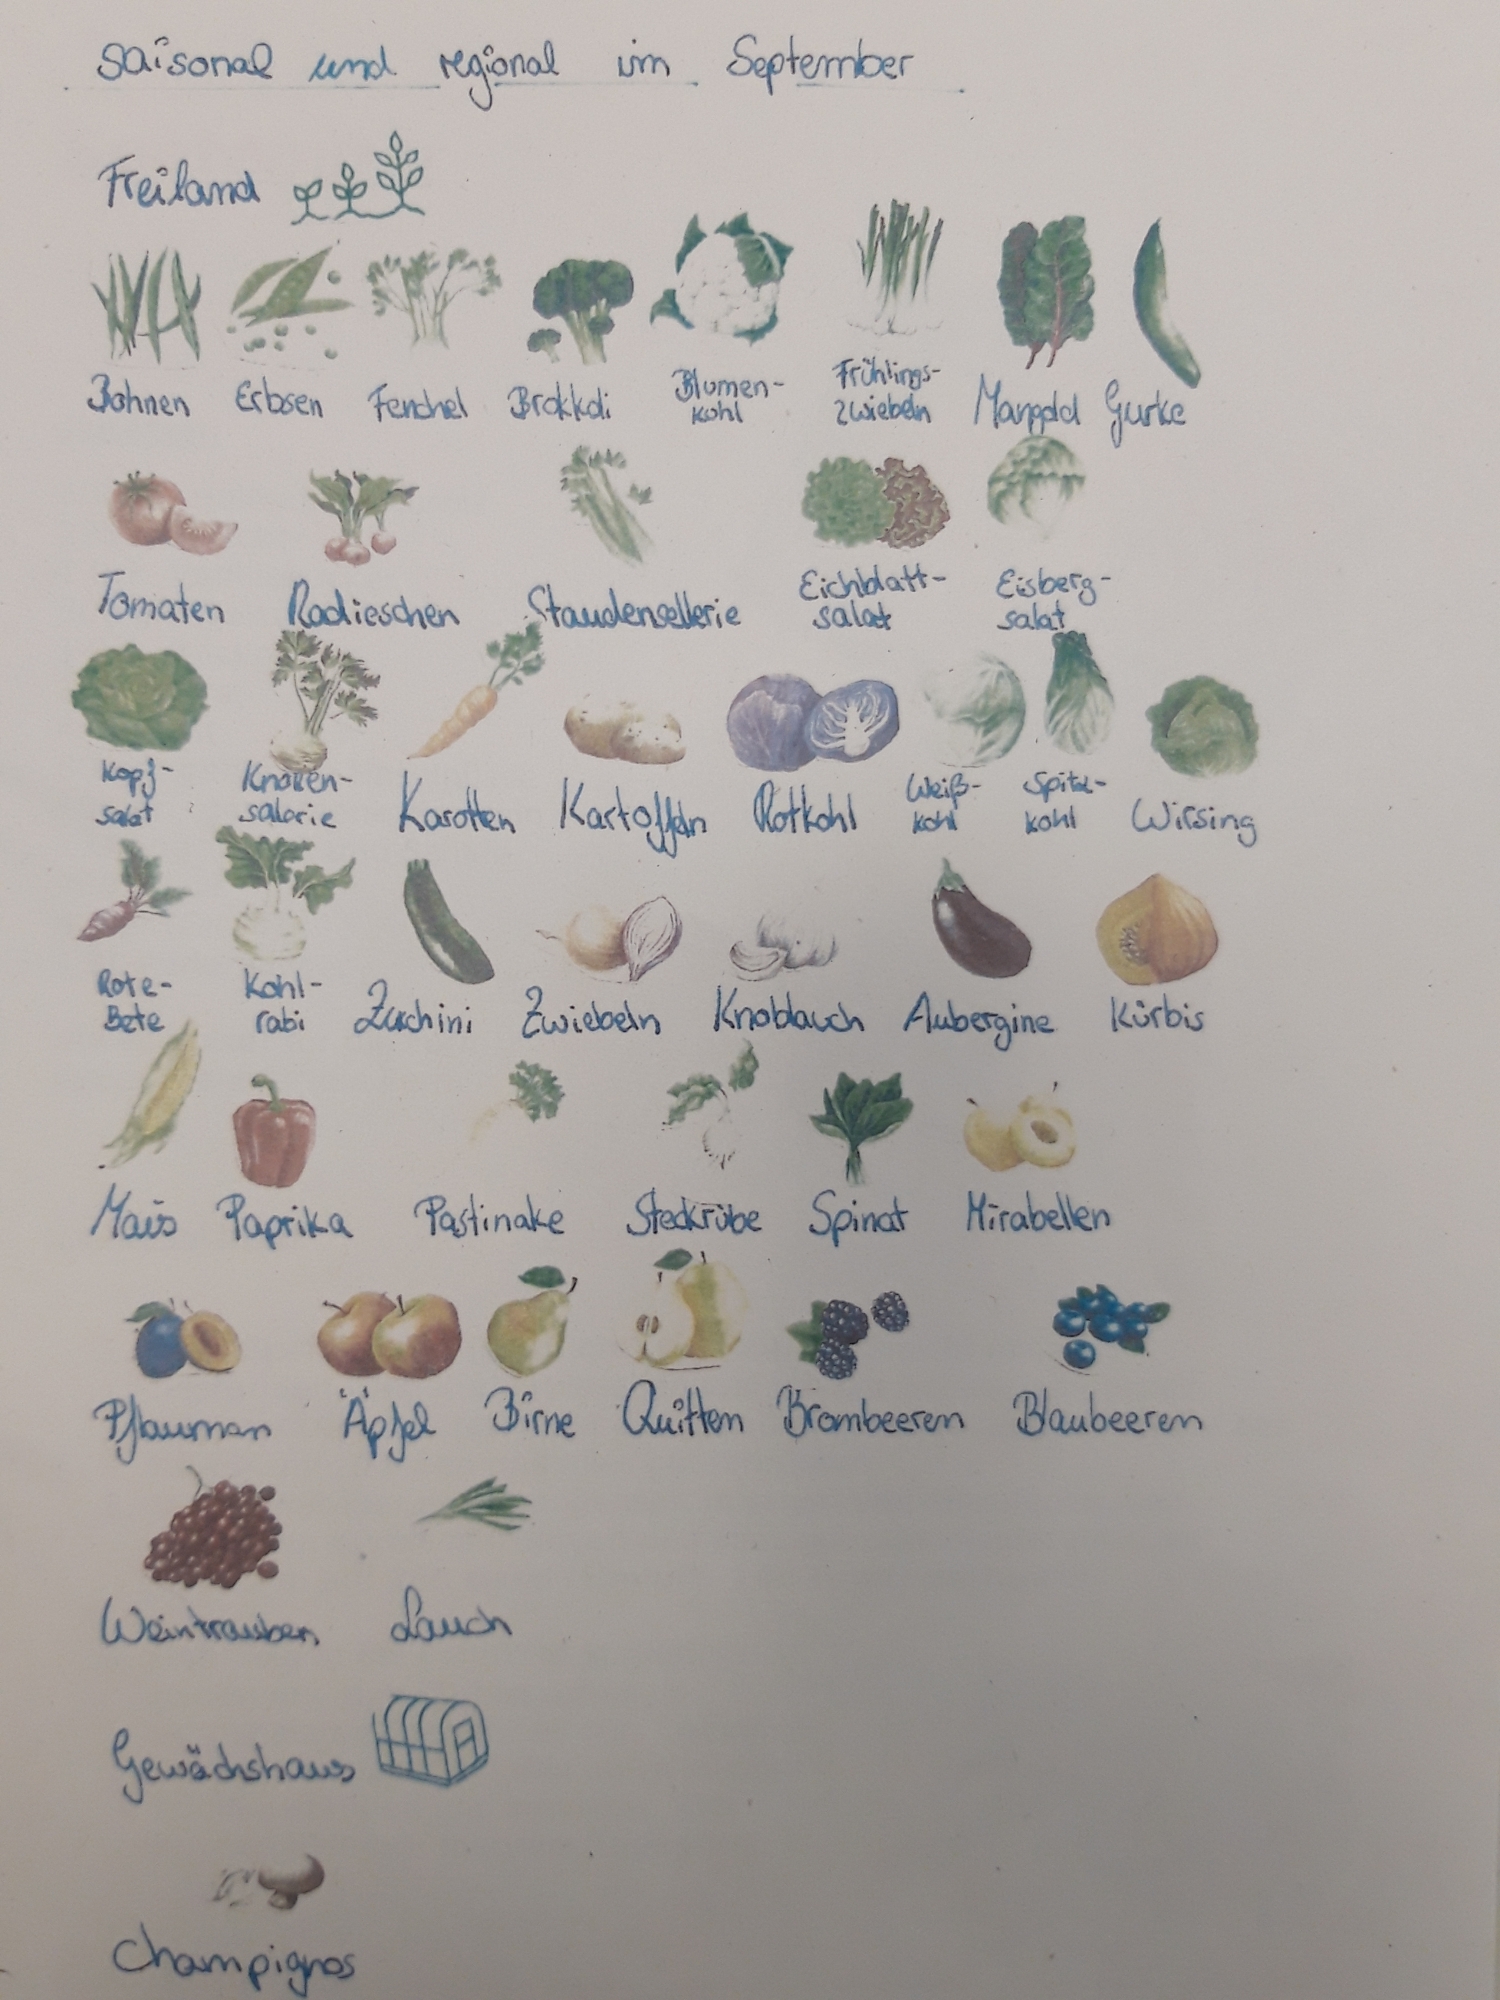 saisonal und regional im September
Freiland
Bohnen Erbsen Fenchel Brokkoli Blumen-
kohl Frühlings-
zwiebeln Mangold Gurke
Tomaten Radieschen Staudensellerie Eichblatt-
salat Eisberg-
salat
Kopf-
salat Knollen-
salerie Karotten Kartoffeln Rotkohl Weiß-
kohl Spitz-
kohl Wirsing
Rote-
Bete Kohl-
rabi Zuchini Zwiebeln Knoblauch Aubergine Kürbis
Mais Paprika Pastinake Steckrübe Spinat Mirabellen
Pflaumen Äpfel Birne Quitten Brombeeren Blaubeeren
Weintrauben Lauch
Gewächshaus
Champignos